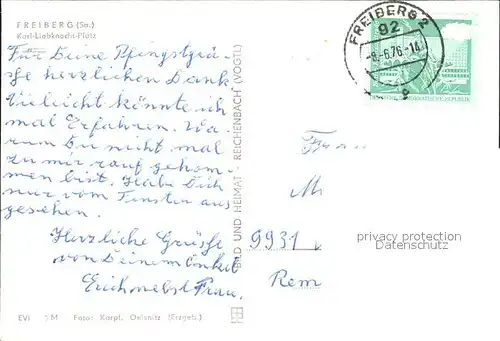 FREIBERG (Sa.)
Karl-Liebknecht-Platz
Für Deine Pfingstgrü-
ße herzlichen Dank
Vielleicht könnte ich
mal Erfahren. Wa-
rum Du nicht mal
zu mir rauf gekom-
men bist. Habe Dich
nur vom Fenster aus
gesehen.
Herzliche Grüsse
von Deinem Onkel
Erich nebst Frau.
EVP M Foto: Karpf, Oelsnitz (Erzgeb.)
BILD UND HEIMAT REICHENBACH (VOGTL)
FREIBERG 2
92
-8.-6.76.-14
DEMOKRATISCHE REPUBLIK
Frau
M
9931
Rem
privacy protection
Datenschutz